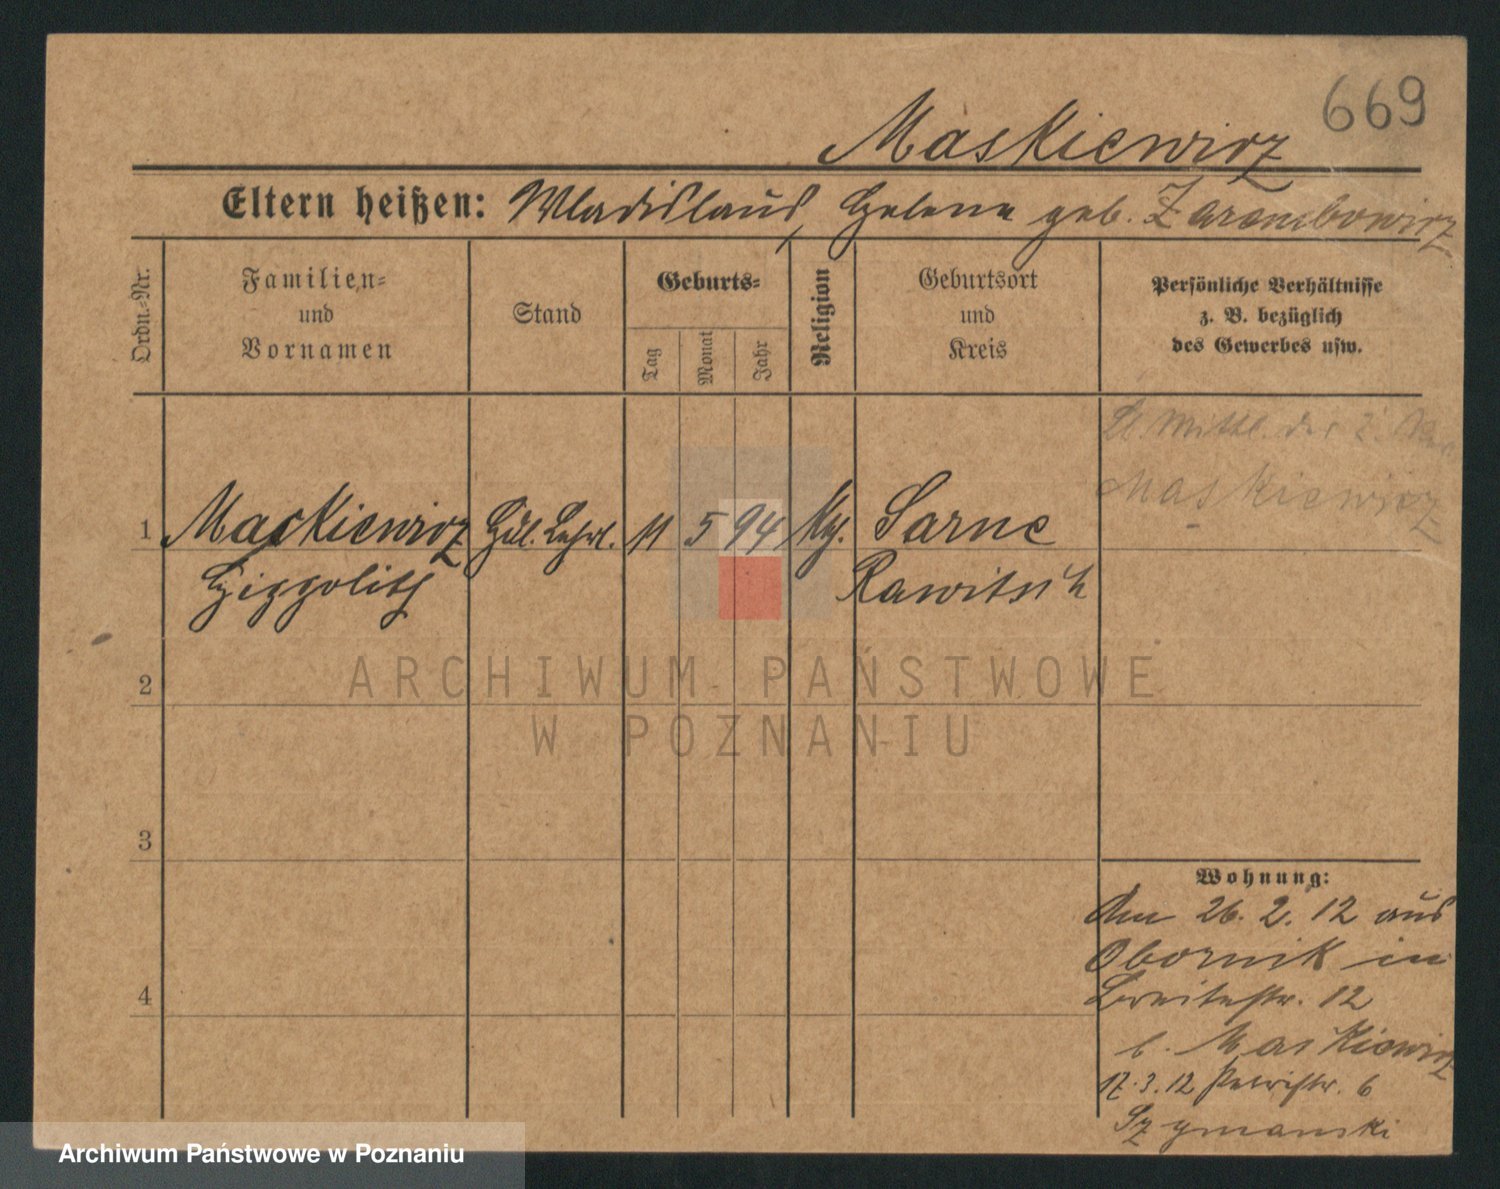 669
Maskiewicz
Eltern heißen: Wladislaus, Helene geb. Zarembowicz
Ordn.-Nr.
Familien-
und
Vornamen
Stand
Geburts-
Tag
Monat
Jahr
Religion
Geburtsort
und
Kreis
Persönliche Verhältnisse
z. B. bezüglich
des Gewerbes usw.
Maskiewicz
1 Maskiewicz 11 5 94 Sarne
Hippolith Rawitsch
2
ARCHIWUM PAŃSTWOWE
W POZNANIU
3
4
Wohnung:
Am 26. 2. 12 aus
Obornik in
Breitestr. 12
b. Maskiewicz
17. 3. 12 Petristr. 6
Szymanski
Archiwum Państwowe w Poznaniu